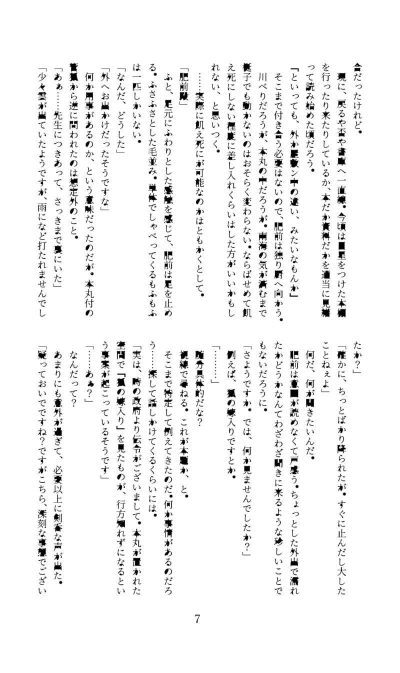 合だったけれど。
現に、戻るや否や書庫へ一直線。今頃は目星をつけた本棚
を行ったり来たりしているか、本だか資料だかを適当に見繕
って読み始めた頃だろう。
『といっても、外か屋敷ン中の違い、みたいなもんか』
そこまで付き合う必要はないので、肥前は独り厨へ向かう。
川べりだろうが、本丸の中だろうが、南海の気が済むまで
梃子でも動かないのはおそらく変わらない。ならばせめて飢
え死にしない程度に差し入れくらいはした方がいいかもし
れない、と思いつく。
……実際に飢え死にが可能なのかはともかくとして。
「肥前殿」
ふと、足元にふわりとした感触を感じて、肥前は足を止め
る。ふさふさとした毛並み。単体でしゃべってくるもふもふ
は一匹しかいない。
「なんだ、どうした」
「外へお出かけだったそうですな」
何か用事があるのか、という意味だったのだが。本丸付の
管狐から逆に問われたのは想定外のこと。
「あぁ……先生につきあって、さっきまで
「少々雲が出ていたようですが、雨になど打たれませんでし
たか？」
「確かに、ちっとばかり降られたが。すぐに止んだし大した
ことねぇよ」
何だ、何が聞きたいんだ。
肥前は意図が読めなくて戸惑う。ちょっとした外出で濡れ
たかどうかなんてわざわざ聞きに来るような珍しいことで
もないだろうに。
「さようですか。では、何か見ませんでしたか？」
「……」
「例えば、狐の嫁入りですとか」
「……」
随分具体的だな？
視線で尋ねる。これが本題か、と。
そこまで特定して例えてきたのだ。何か事情があるのだろ
う……探して話しかけてくるくらいには。
「実は、時の政府より伝令がございまして。本丸が置かれた
空間で『狐の嫁入り』を見たものが、行方知れずになるとい
う事案が起こっているそうです」
「……あぁ？」
なんだって？
あまりにも意外が過ぎて、必要以上に剣呑な声が出た。
「疑っておいでですね？ですがこちら、深刻な事態でござい
7